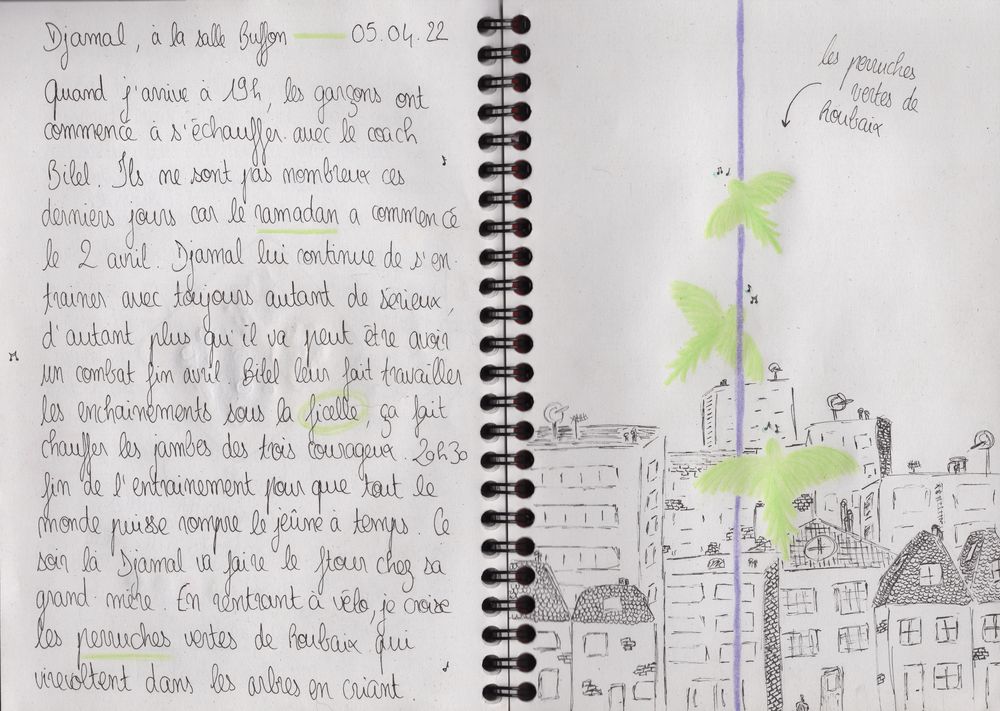 Djamal, à la salle Buffon — 05.04.22
Quand j'arrive à 19h, les garçons ont
commencé à s'échauffer avec le coach
Bilel. Ils ne sont pas nombreux ces
derniers jours car le ramadan a commencé
le 2 avril. Djamal lui continue de s'en-
trainer avec toujours autant de sérieux,
d'autant plus qu'il va peut être avoir
un combat fin avril. Bilel leur fait travailler
les enchainements sous la ficelle, ça fait
chauffer les jambes des trois courageux. 20h30
fin de l'entrainement pour que tout le
monde puisse rompre le jeûne à temps. Ce
soir là Djamal va faire le ftour chez sa
grand-mère. En rentrant à vélo, je croise
les perruches vertes de Roubaix qui
virevoltent dans les arbres en criant.
les perruches
vertes de
Roubaix